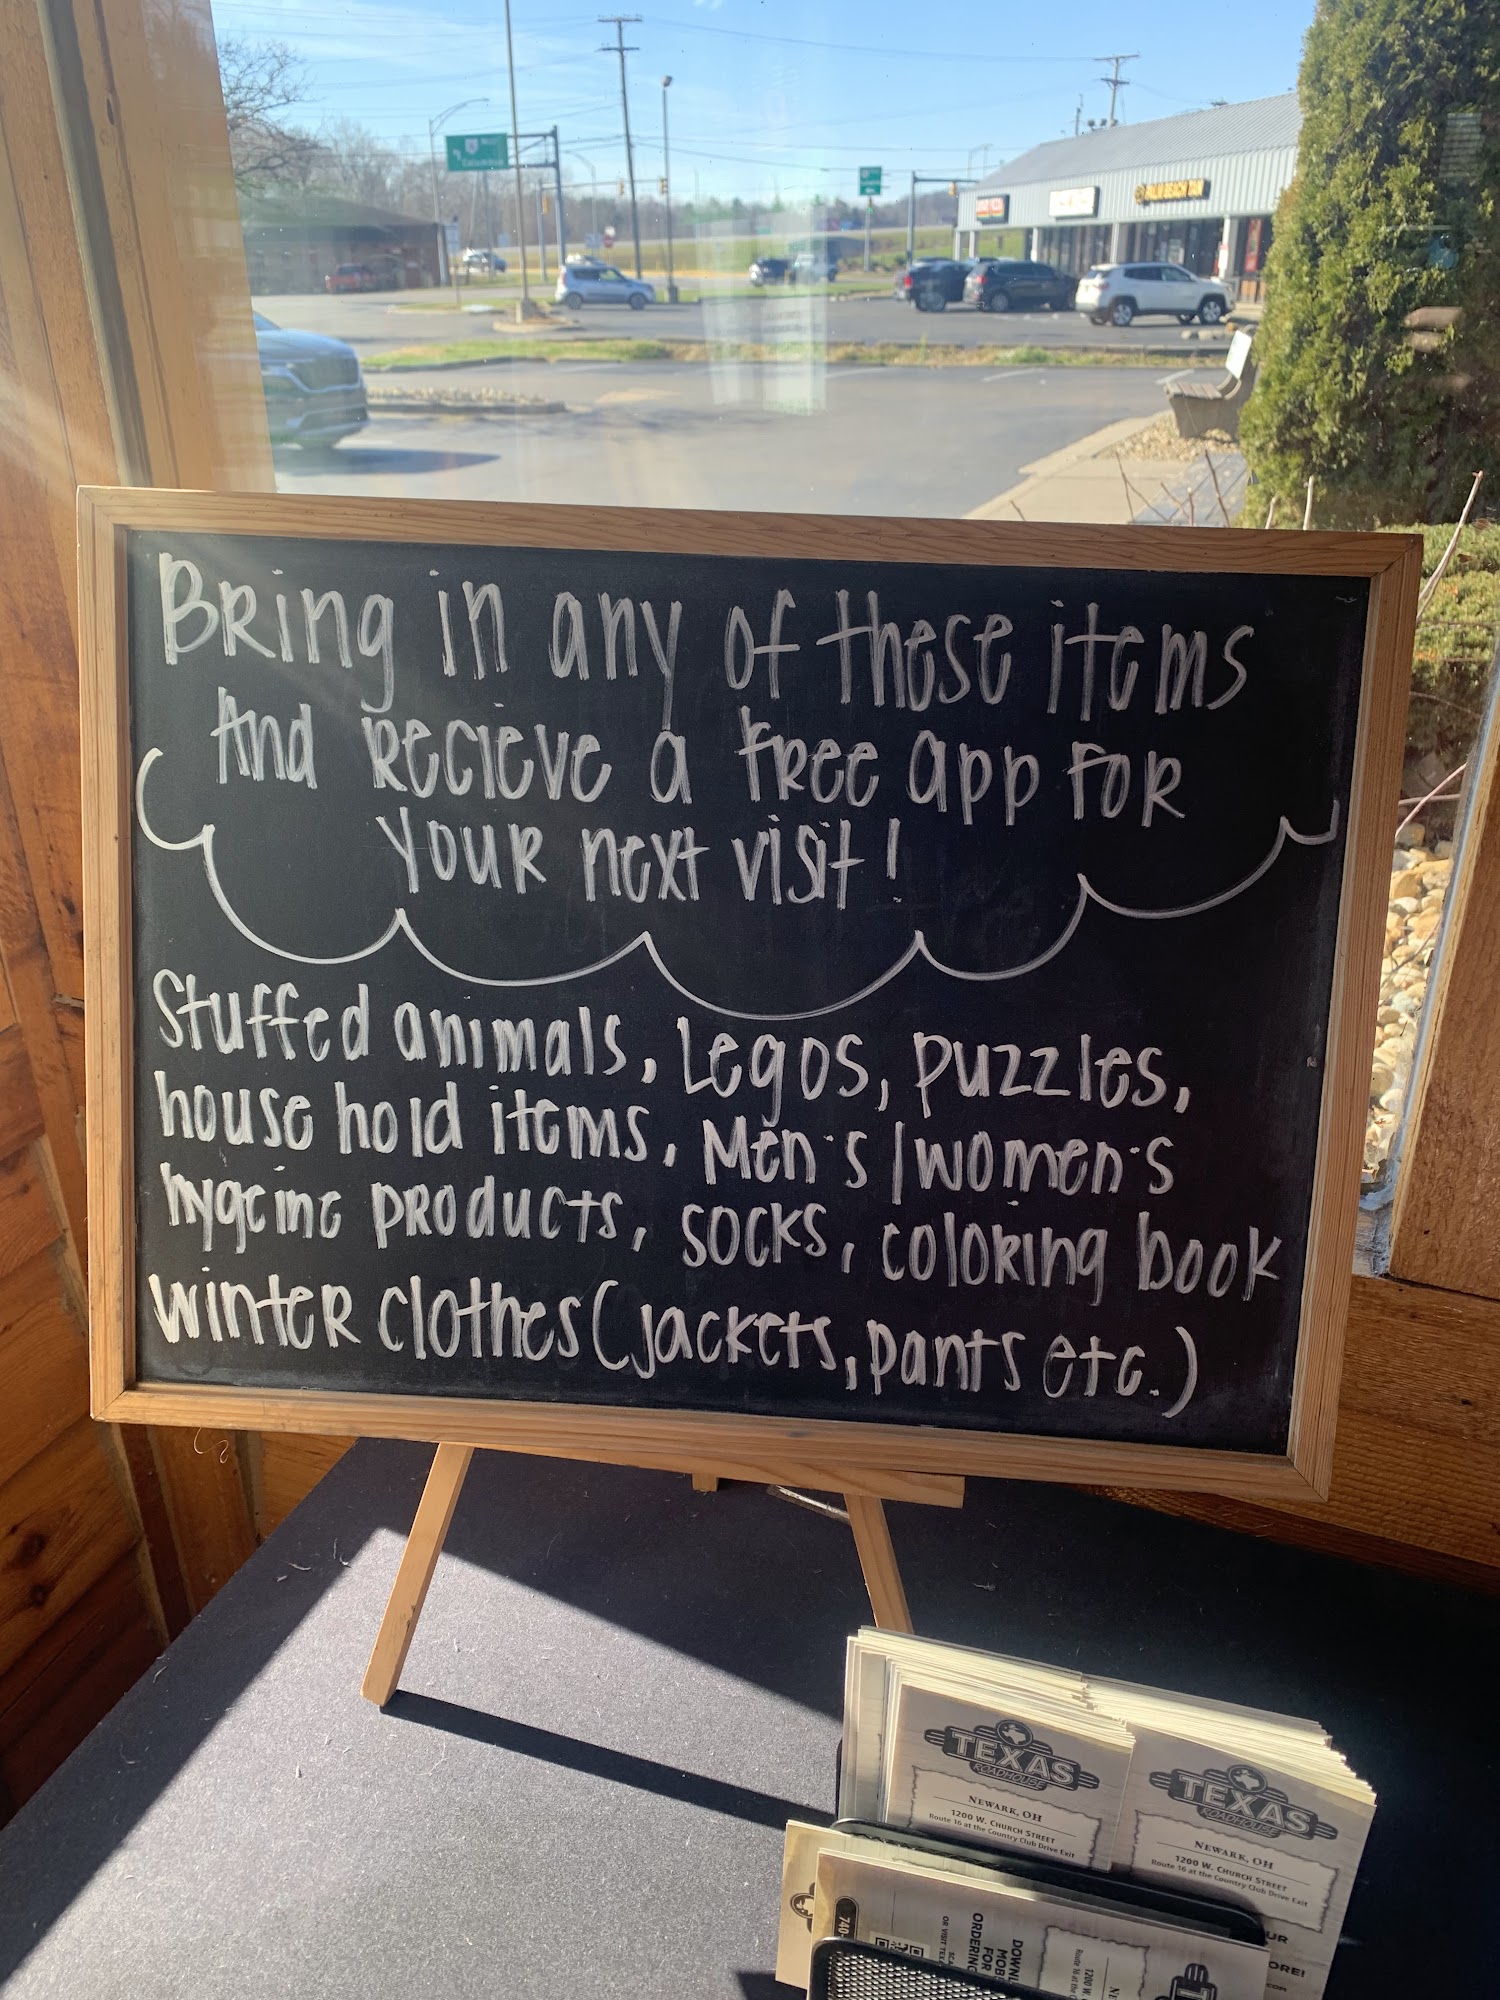 Columbus
PALM BEACH TAN
Bring in any of these items
And recieve a free app for
your next visit!
Stuffed animals, Legos, puzzles,
house hold items, Men's/women's
hygeine products, socks, coloring book
winter clothes (jackets, pants etc.)
TEXAS
ROADHOUSE
NEWARK, OH
1200 W. CHURCH STREET
Route 16 at the Country Club Drive Exit
TEXAS
ROADHOUSE
NEWARK, OH
1200 W. CHURCH STREET
Route 16 at the Country Club Drive Exit
740
OR VISIT
ORDERING
FOR
1200 W.
Route 16 at the Country